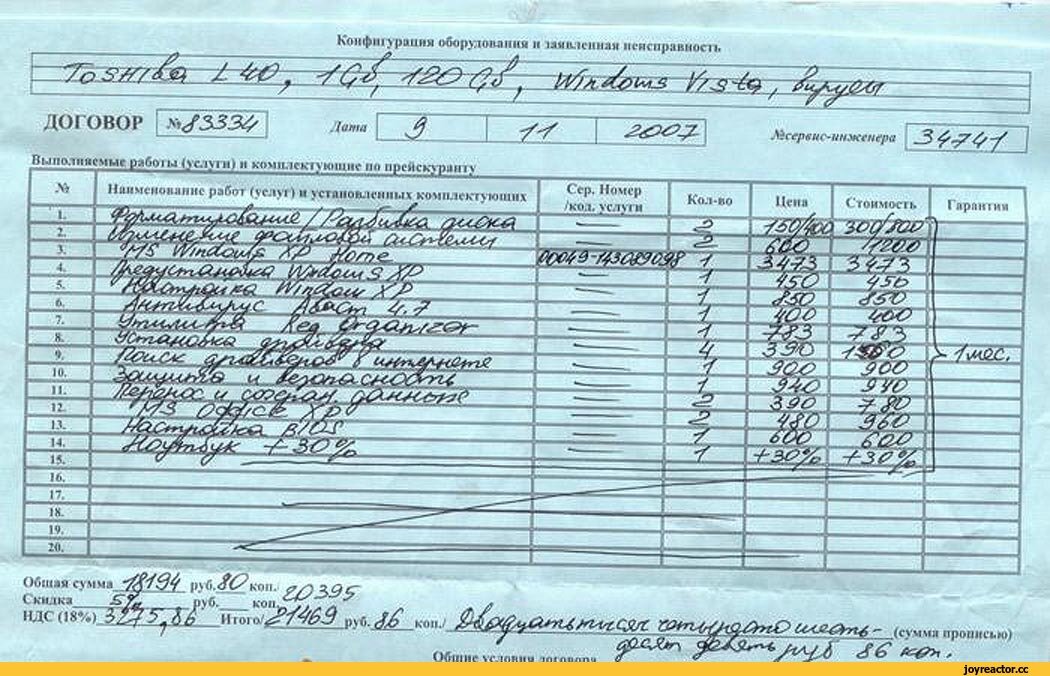 Конфигурация оборудования и заявленная неисправность
Toshiba L40, 1Gб, 120 Gб, Windows Vista, вирусы
ДОГОВОР №83334 Дата 9 11 2007 №сервис-инженера 34741
Выполняемые работы (услуги) и комплектующие по прейскуранту
№ Наименование работ (услуг) и установленных комплектующих Сер. Номер /код. услуги Кол-во Цена Стоимость Гарантия
1. Форматирование / Разбивка диска — 2 150/400 300/800
2. файловой системы — 2 600 1200
3. MS Windows XP Home 00049-143089098 1 3473 3473
4. Предустановка Windows XP — 1 450 450
5. Настройка Window XP — 1 850 850
6. Антивирус Аваст 4.7 — 1 400 400
7. Утилита Reg Organizer — 1 783 783
8. Установка драйвера — 4 390
9. Поиск драйверов в интернете — 1 900 900 1 мес.
10. Защита и безопасность — 1 940 940
11. Перенос и сохран. данных — 2 390 780
12. MS Office XP — 2 480 960
13. Настройка BIOS — 1 600 600
14. Ноутбук +30% — 1 +30% +30%
15.
16.
17.
18.
19.
20.
Общая сумма 18194 руб. 80 коп. 20395
Скидка 5% руб. коп.
НДС (18%) 3275,86 Итого/ 21469 руб. 86 коп./ (сумма прописью)
десят девять руб 86 коп.
Общие условия договора
joyreactor.cc